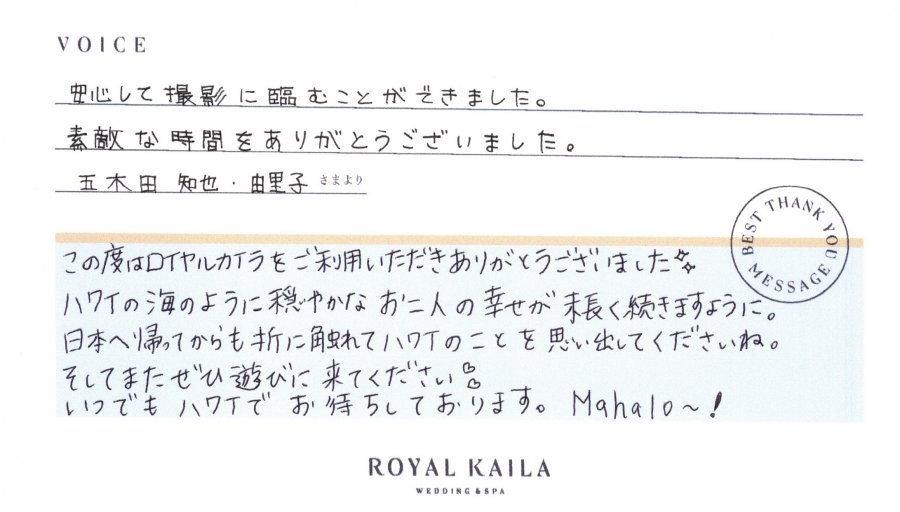 VOICE
安心して撮影に臨むことができました。
素敵な時間をありがとうございました。
五木田 知也・由里子 さまより
BEST THANK YOU MESSAGE
この度はロイヤルカイラをご利用いただきありがとうございました
ハワイの海のように穏やかな お二人の幸せが 末長く続きますように。
日本へ帰ってからも折に触れてハワイのことを思い出してくださいね。
そしてまたぜひ遊びに来てください
いつでも ハワイで お待ちしております。 Mahalo〜!
ROYAL KAILA
WEDDING & SPA